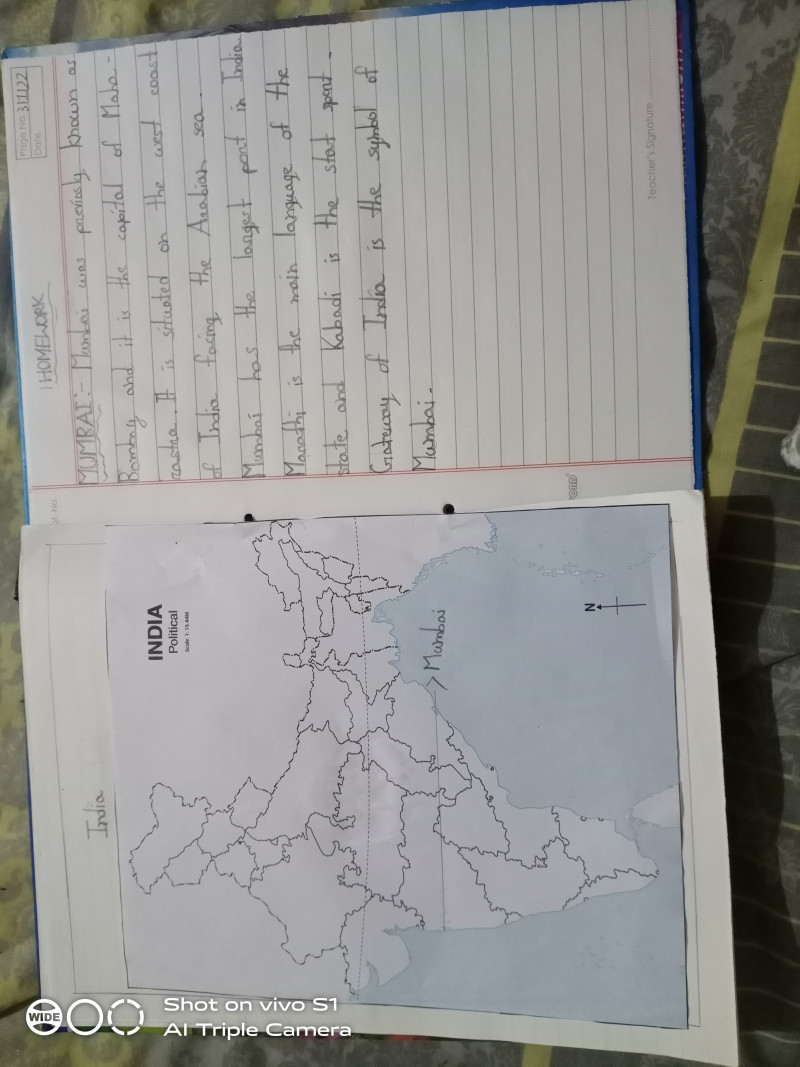 Page No. 31/1/22
Date
HOMEWORK
MUMBAI:- Mumbai was previosly known as
Bombay and it is the capital of Maha-
rastra. It is situated on the west coast
of India facing the Arabian sea.
Mumbai has the largest port in India
Marathi is the main language of the
state and Kabadi is the stat sport.
Gateway of India is the symbol of
Mumbai.
Teacher's Signature
India
INDIA
Political
Scale 1: 15.44M
> Mumbai
N
WIDE
Shot on vivo S1
AI Triple Camera